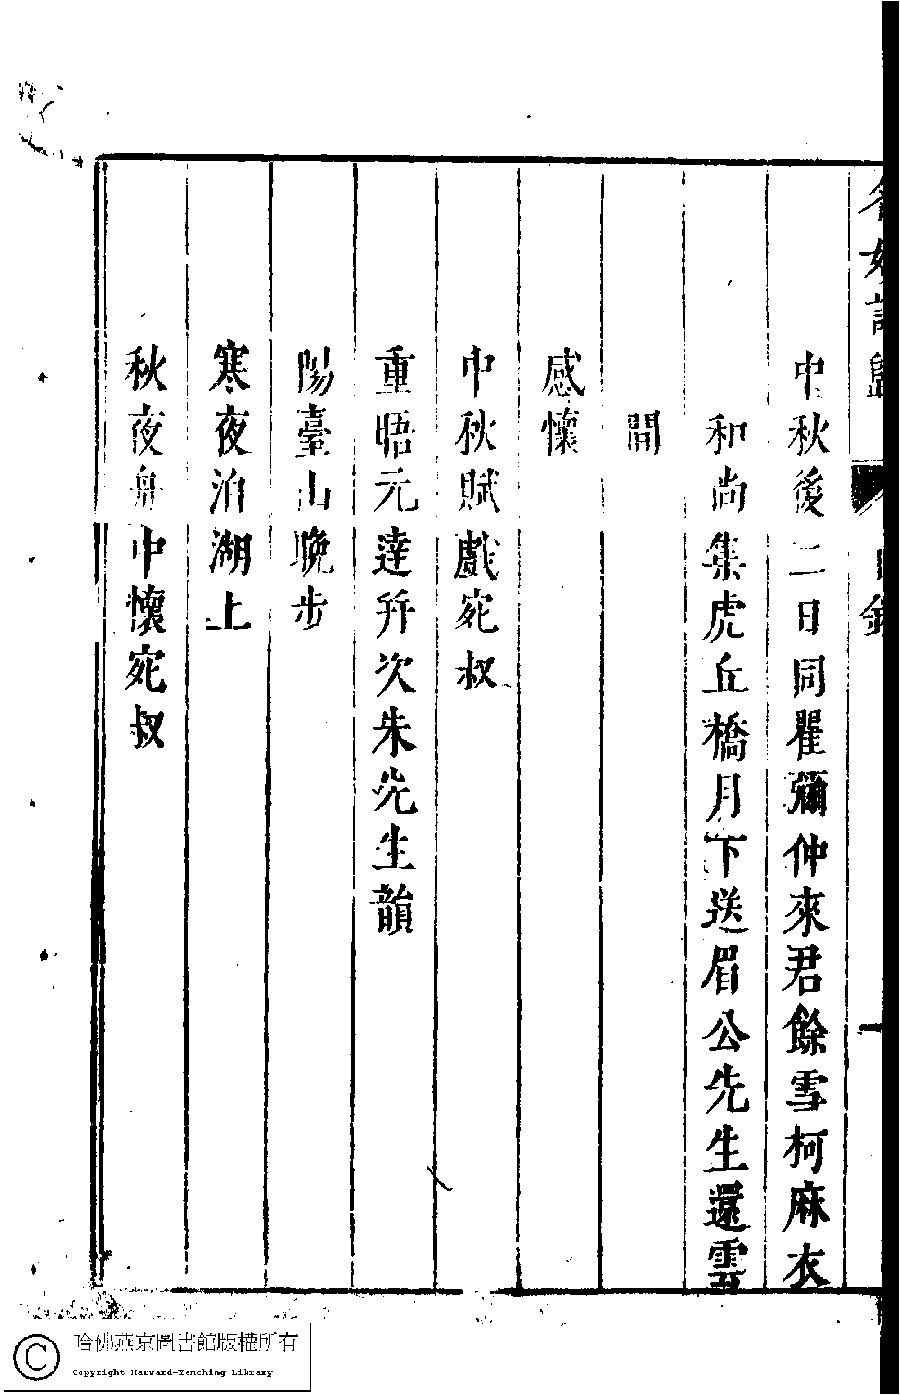 名媛詩歸
目錄
一
中秋後二日同瞿彌仲來君餘雪柯麻衣
和尚集虎丘橋月下送眉公先生還雲
間
感懷
中秋賦戲宛叔
重晤元達并次朱先生韻
陽臺山晚步
寒夜泊湖上
秋夜舟中懷宛叔
© 哈佛燕京圖書館版權所有
Copyright Harvard-Yenching Library